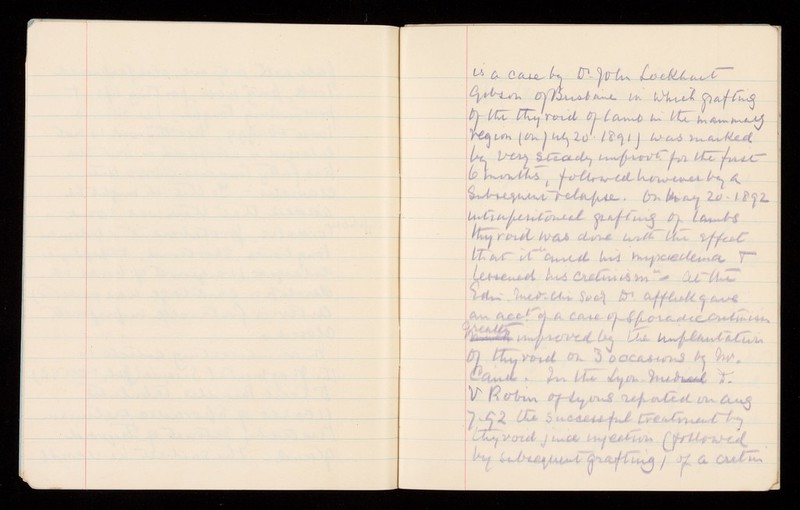 is a case by Dr. John Lockhart
Gibson of Brisbane in which grafting
of the thyroid of lamb in the mammary
region (on July 20 1891) was marked
by very steady improvt for the first
6 months, followed however by a
subsequent relapse. On May 20 1892
intraperitoneal grafting of lambs
thyroid was done with the effect
that it "cured his myxoedema &
lessened his cretinism" - At the
Edin. Dr. Affleck gave
an acct of a case of sporadic cretinism
greatly improved by the implantation
of thyroid on 3 occasions by Mr.
Caird. In the Lyon Medical
V Robin of Lyons reported on Aug
7. 92 the successful treatment by
thyroid juice injection (followed
by subsequent grafting) of a cretin